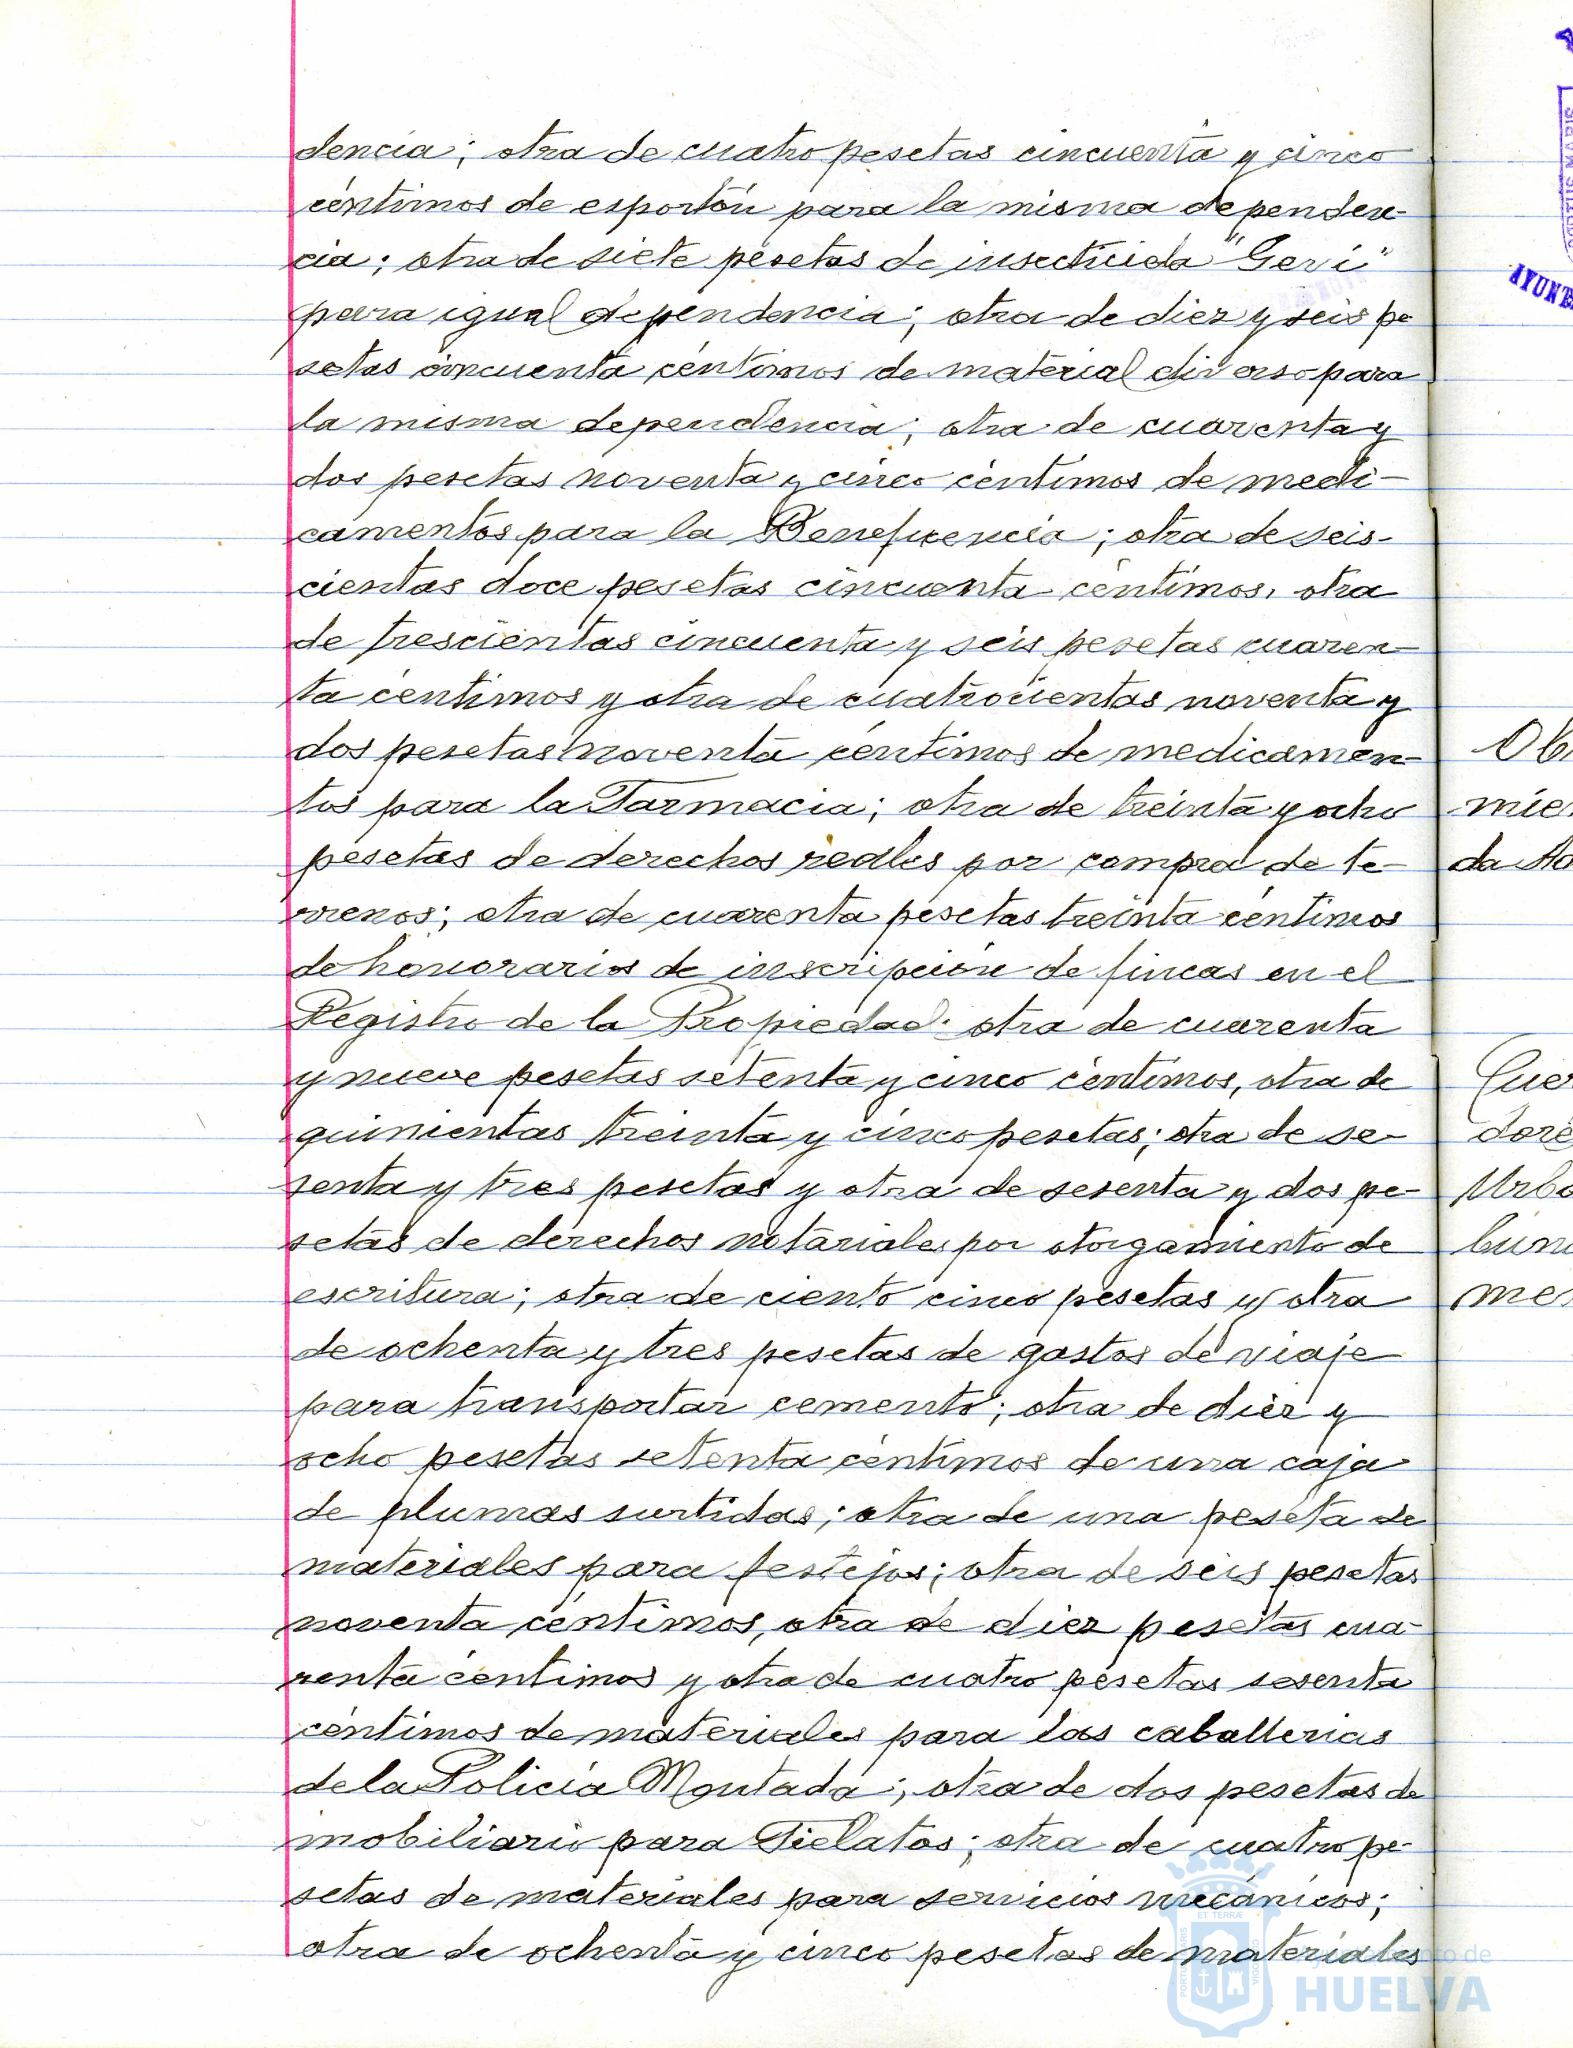 dencia; otra de cuatro pesetas cincuenta y cinco
céntimos de esportón para la misma dependen-
cia; otra de siete pesetas de insecticida "Geri"
para igual dependencia; otra de diez y seis pe
setas cincuenta céntimos de material diverso para
la misma dependencia; otra de cuarenta y
dos pesetas noventa y cinco céntimos de medi-
camentos para la Beneficencia; otra de seis-
cientas doce pesetas cincuenta céntimos, otra
de trescientas cincuenta y seis pesetas cuaren-
ta céntimos y otra de cuatrocientas noventa y
dos pesetas noventa céntimos de medicamen-
tos para la Farmacia; otra de treinta y ocho
pesetas de derechos reales por compra de te-
rrenos; otra de cuarenta pesetas treinta céntimos
de honorarios de inscripción de fincas en el
Registro de la Propiedad; otra de cuarenta
y nueve pesetas setenta y cinco céntimos, otra de
quinientas treinta y cinco pesetas; otra de se-
senta y tres pesetas y otra de sesenta y dos pe-
setas de derechos notariales por otorgamiento de
escritura; otra de ciento cinco pesetas y otra
de ochenta y tres pesetas de gastos de viaje
para transportar cemento; otra de diez y
ocho pesetas setenta céntimos de una caja
de plumas surtidas; otra de una peseta de
materiales para festejos; otra de seis pesetas
noventa céntimos, otra de diez pesetas cua-
renta céntimos y otra de cuatro pesetas sesenta
céntimos de materiales para las caballerias
de la Policía Montada; otra de dos pesetas de
mobiliario para Fielatos; otra de cuatro pe-
setas de materiales para servicios mecánicos;
otra de ochenta y cinco pesetas de materiales
Obr
mien
da Ho
Cuer
dore
Urba
bun
men
AYUNT
Ayuntamiento de
HUELVA